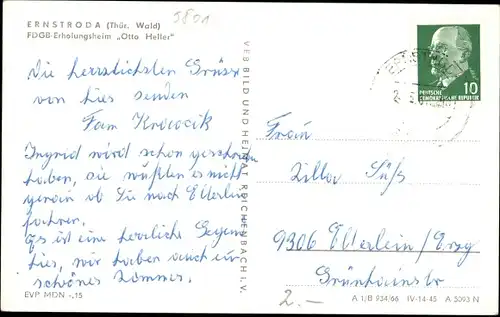 ERNSTRODA (Thür. Wald)
FDGB-Erholungsheim „Otto Heller"
5801
Die herzlichsten Grüsse
von hier senden
Fam
Ingrid wird schon geschrieben
haben, sie wußten es nicht
genau ob Sie nach Elterlein
fahren.
Es ist eine herrliche Gegend
hier, wir haben auch ein
schönes Zimmer.
EVP MDN -,15
VEB BILD UND HEIMAT REICHENBACH i. V.
DEUTSCHE
DEMOKRATISCHE REPUBLIK
10
Frau
Zilla Süß
9306 Elterlein/Erzg
Grünhainstr
2.-
A 1/B 934/66 IV-14-45 A 5093 N